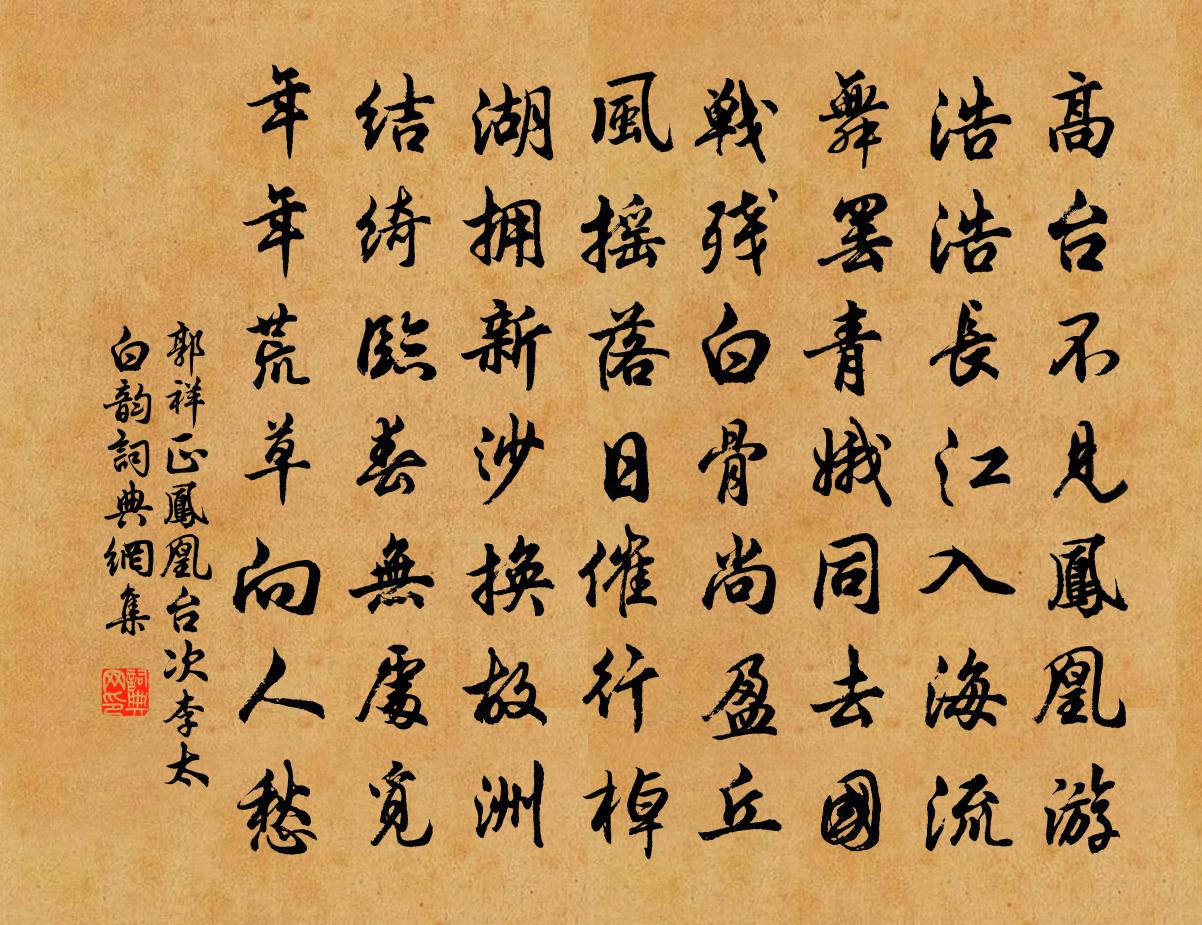 高台不見鳳凰游
浩浩長江入海流
舞罢青娥同去國
戦残白骨尚盈丘
風摇落日催行棹
湖拥新沙换故洲
结绮臨春無處覓
年年荒草向人愁
郭祥正鳳凰台次李太
白韵詞典網集
詞典
网印